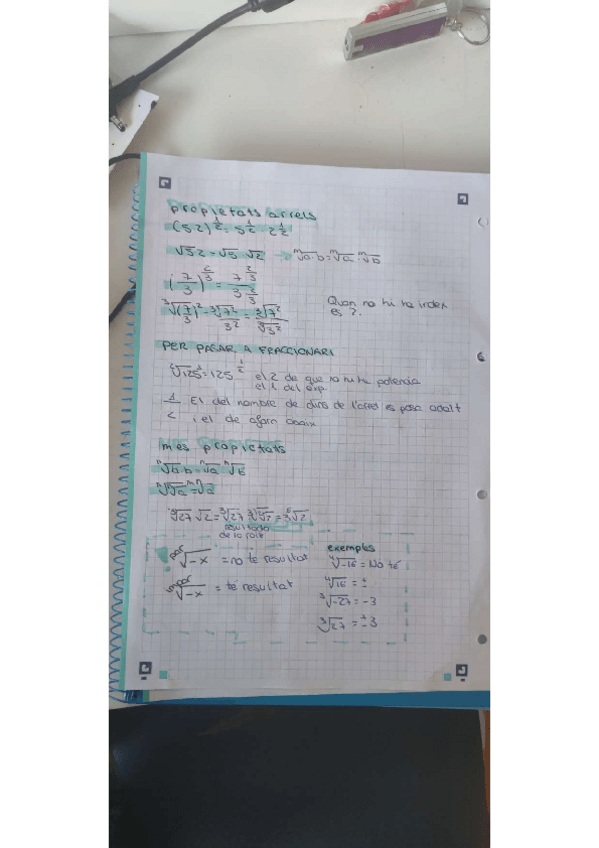 propietats arrels
(5·2)^½ = 5^½ · 2^½
√5·2 = √5 · √2 → ᵐ√a·b = ᵐ√a · ᵐ√b
(7/3)^⅔ = 7^⅔ / 3^⅔
Quan no hi ha index
es 2.
³√(7/3)² = ³√7²/3² = ³√7² / ³√3²
PER PASAR A FRACCIONARI
√125¹ = 125^½ el 2 de que no hi ha potencia
el 1 del exp.
1/2 El del nombre de dins de l'arrel es posa adalt
i el de afora abaix
mes propietats
ⁿ√a·b = ⁿ√a ⁿ√b
resultado
de la raiz
par√-x = no te resultat
impar√-x = té resultat
exemples
⁴√-16 = No té
⁴√16 = ±
³√-27 = -3
³√27 = ±3